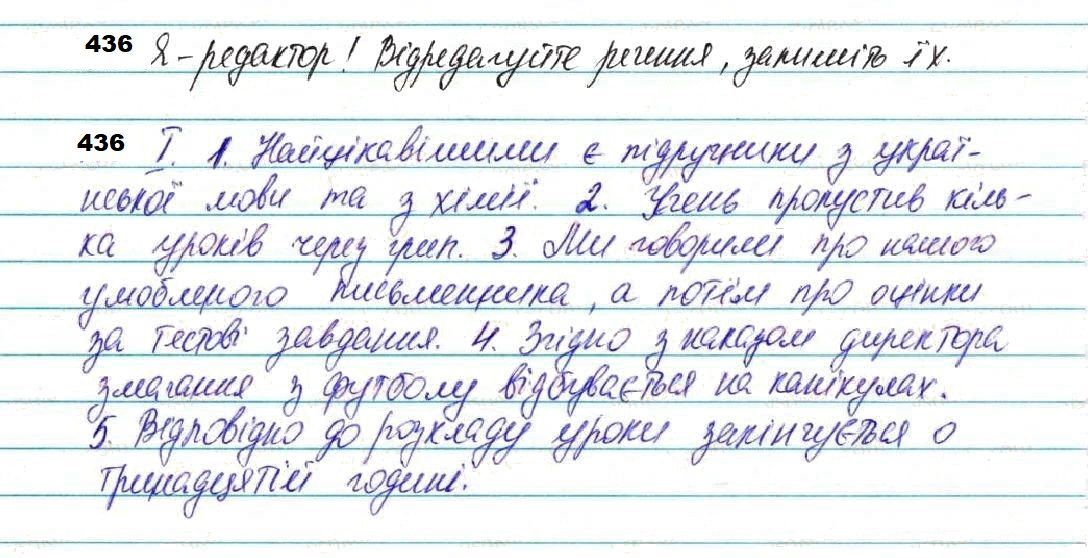 436 Я – редактор! Відредагуйте речення, запишіть їх.
436 І. 1. Найцікавішими є підручники з украї-
нської мови та з хімії. 2. Учень пропустив кіль-
ка уроків через грип. 3. Ми говорили про нашого
улюбленого письменника, а потім про оцінки
за тестові завдання. 4. Згідно з наказом директора
змагання з футболу відбувається на канікулах.
5. Відповідно до розкладу уроки закінчується о
тринадцятій годині.